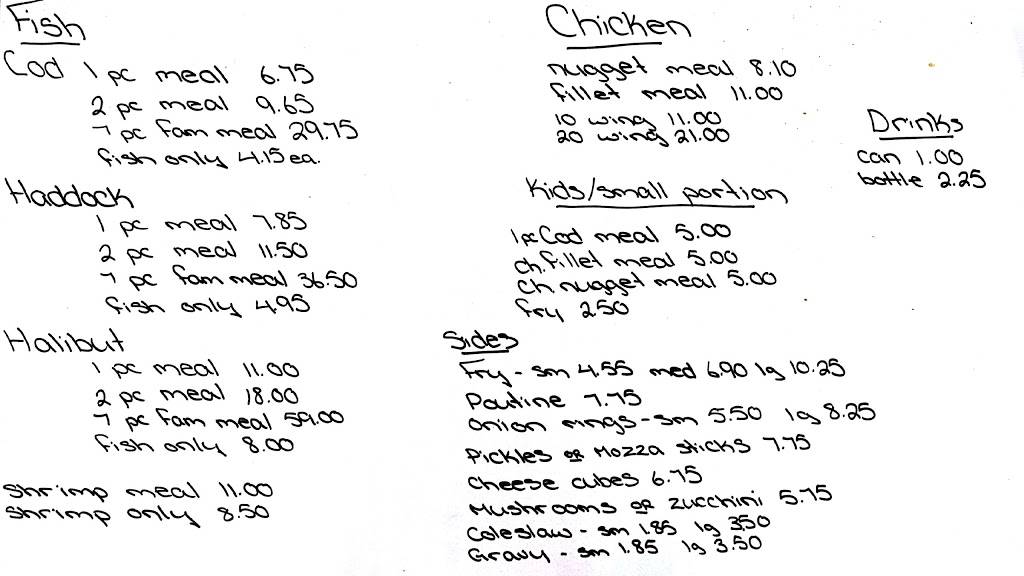 Fish
Cod 1 pc meal 6.75
2 pc meal 9.65
7 pc fam meal 29.75
fish only 4.15 ea.
Haddock
1 pc meal 7.85
2 pc meal 11.50
7 pc fam meal 36.50
fish only 4.95
Halibut
1 pc meal 11.00
2 pc meal 18.00
7 pc fam meal 59.00
fish only 8.00
shrimp meal 11.00
shrimp only 8.50
Chicken
nugget meal 8.10
fillet meal 11.00
10 wing 11.00
20 wing 21.00
Kids/small portion
1pc Cod meal 5.00
ch. fillet meal 5.00
ch. nugget meal 5.00
fry 2.50
Sides
Fry - sm 4.55 med 6.90 lg 10.25
Poutine 7.75
onion rings - sm 5.50 lg 8.25
Pickles or Mozza sticks 7.75
cheese cubes 6.75
Mushrooms or zucchini 5.75
Coleslaw - sm 1.85 lg 3.50
Gravy - sm 1.85 lg 3.50
Drinks
can 1.00
bottle 2.25